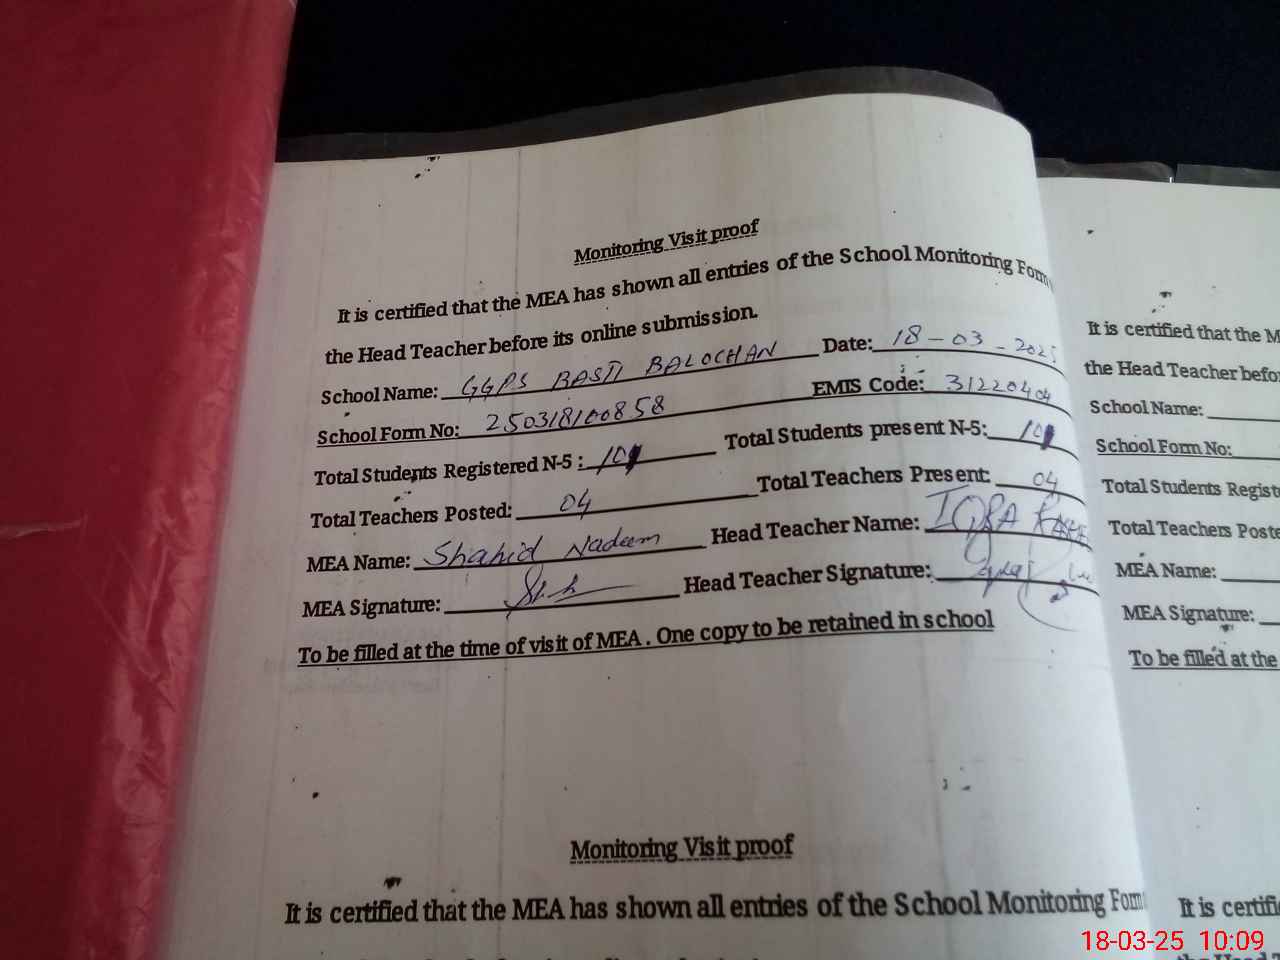 Monitoring Visit proof
It is certified that the MEA has shown all entries of the School Monitoring Form
the Head Teacher before its online submission.
School Name: GGPS BASTI BALOCHAN Date: 18-03-2025
School Form No: 250318100858 EMIS Code: 31220404
Total Students Registered N-5 : 101 Total Students present N-5: 101
Total Teachers Posted: 04 Total Teachers Present: 04
MEA Name: Shahid Nadeem Head Teacher Name: IQRA
MEA Signature: Head Teacher Signature:
To be filled at the time of visit of MEA . One copy to be retained in school
Monitoring Visit proof
It is certified that the MEA has shown all entries of the School Monitoring Form
It is certified that the M
the Head Teacher befor
School Name:
School Form No:
Total Students Regist
Total Teachers Poste
MEA Name:
MEA Signature:
To be filled at the
It is certifi
18-03-25 10:09